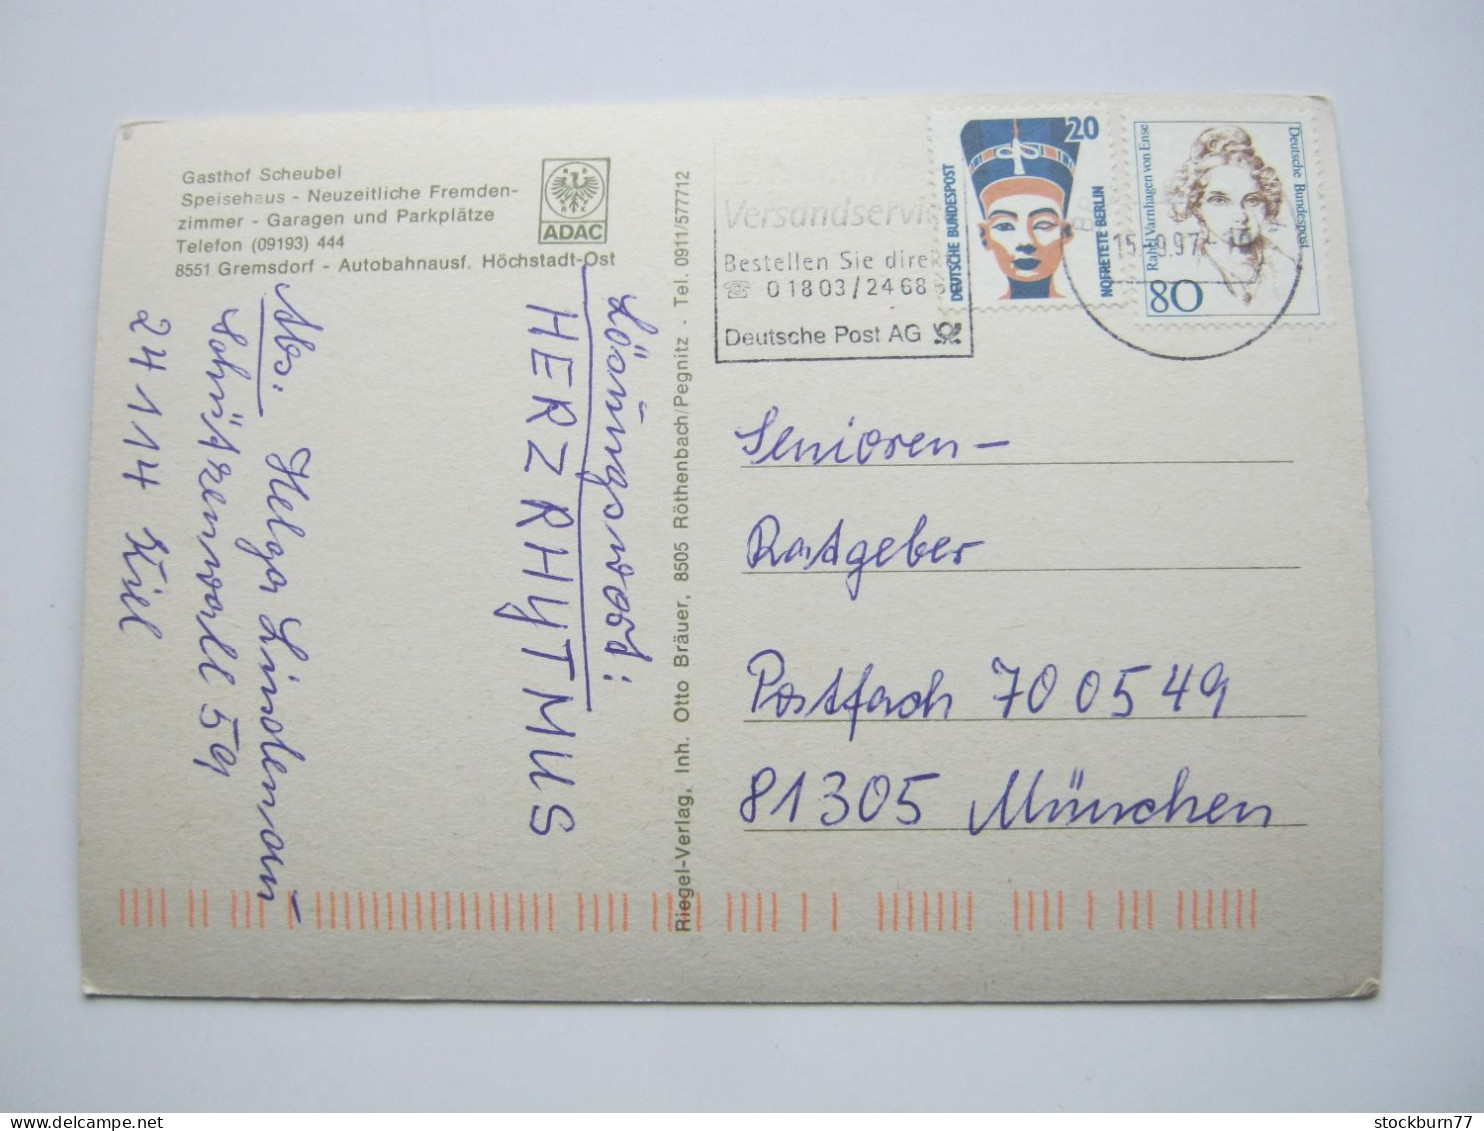 Gasthof Scheubel
Speisehaus - Neuzeitliche Fremden-
zimmer - Garagen und Parkplätze
Telefon (09193) 444
8551 Gremsdorf - Autobahnausf. Höchstadt-Ost
ADAC
Abs. Helga Lindemann
Schützenwall 59
24114 Kiel
Lösungswort:
HERZRHYTMUS
Riegel-Verlag, Inh. Otto Bräuer, 8505 Röthenbach/Pegnitz . Tel. 0911/577712
Versandservi
Bestellen Sie direk
☎ 01803/2468
Deutsche Post AG
20
DEUTSCHE BUNDESPOST
NOFRETETE BERLIN
15.-9.97
Rahel Varnhagen von Ense
Deutsche Bundespost
80
Senioren-
Ratgeber
Postfach 700549
81305 München
stockburn77